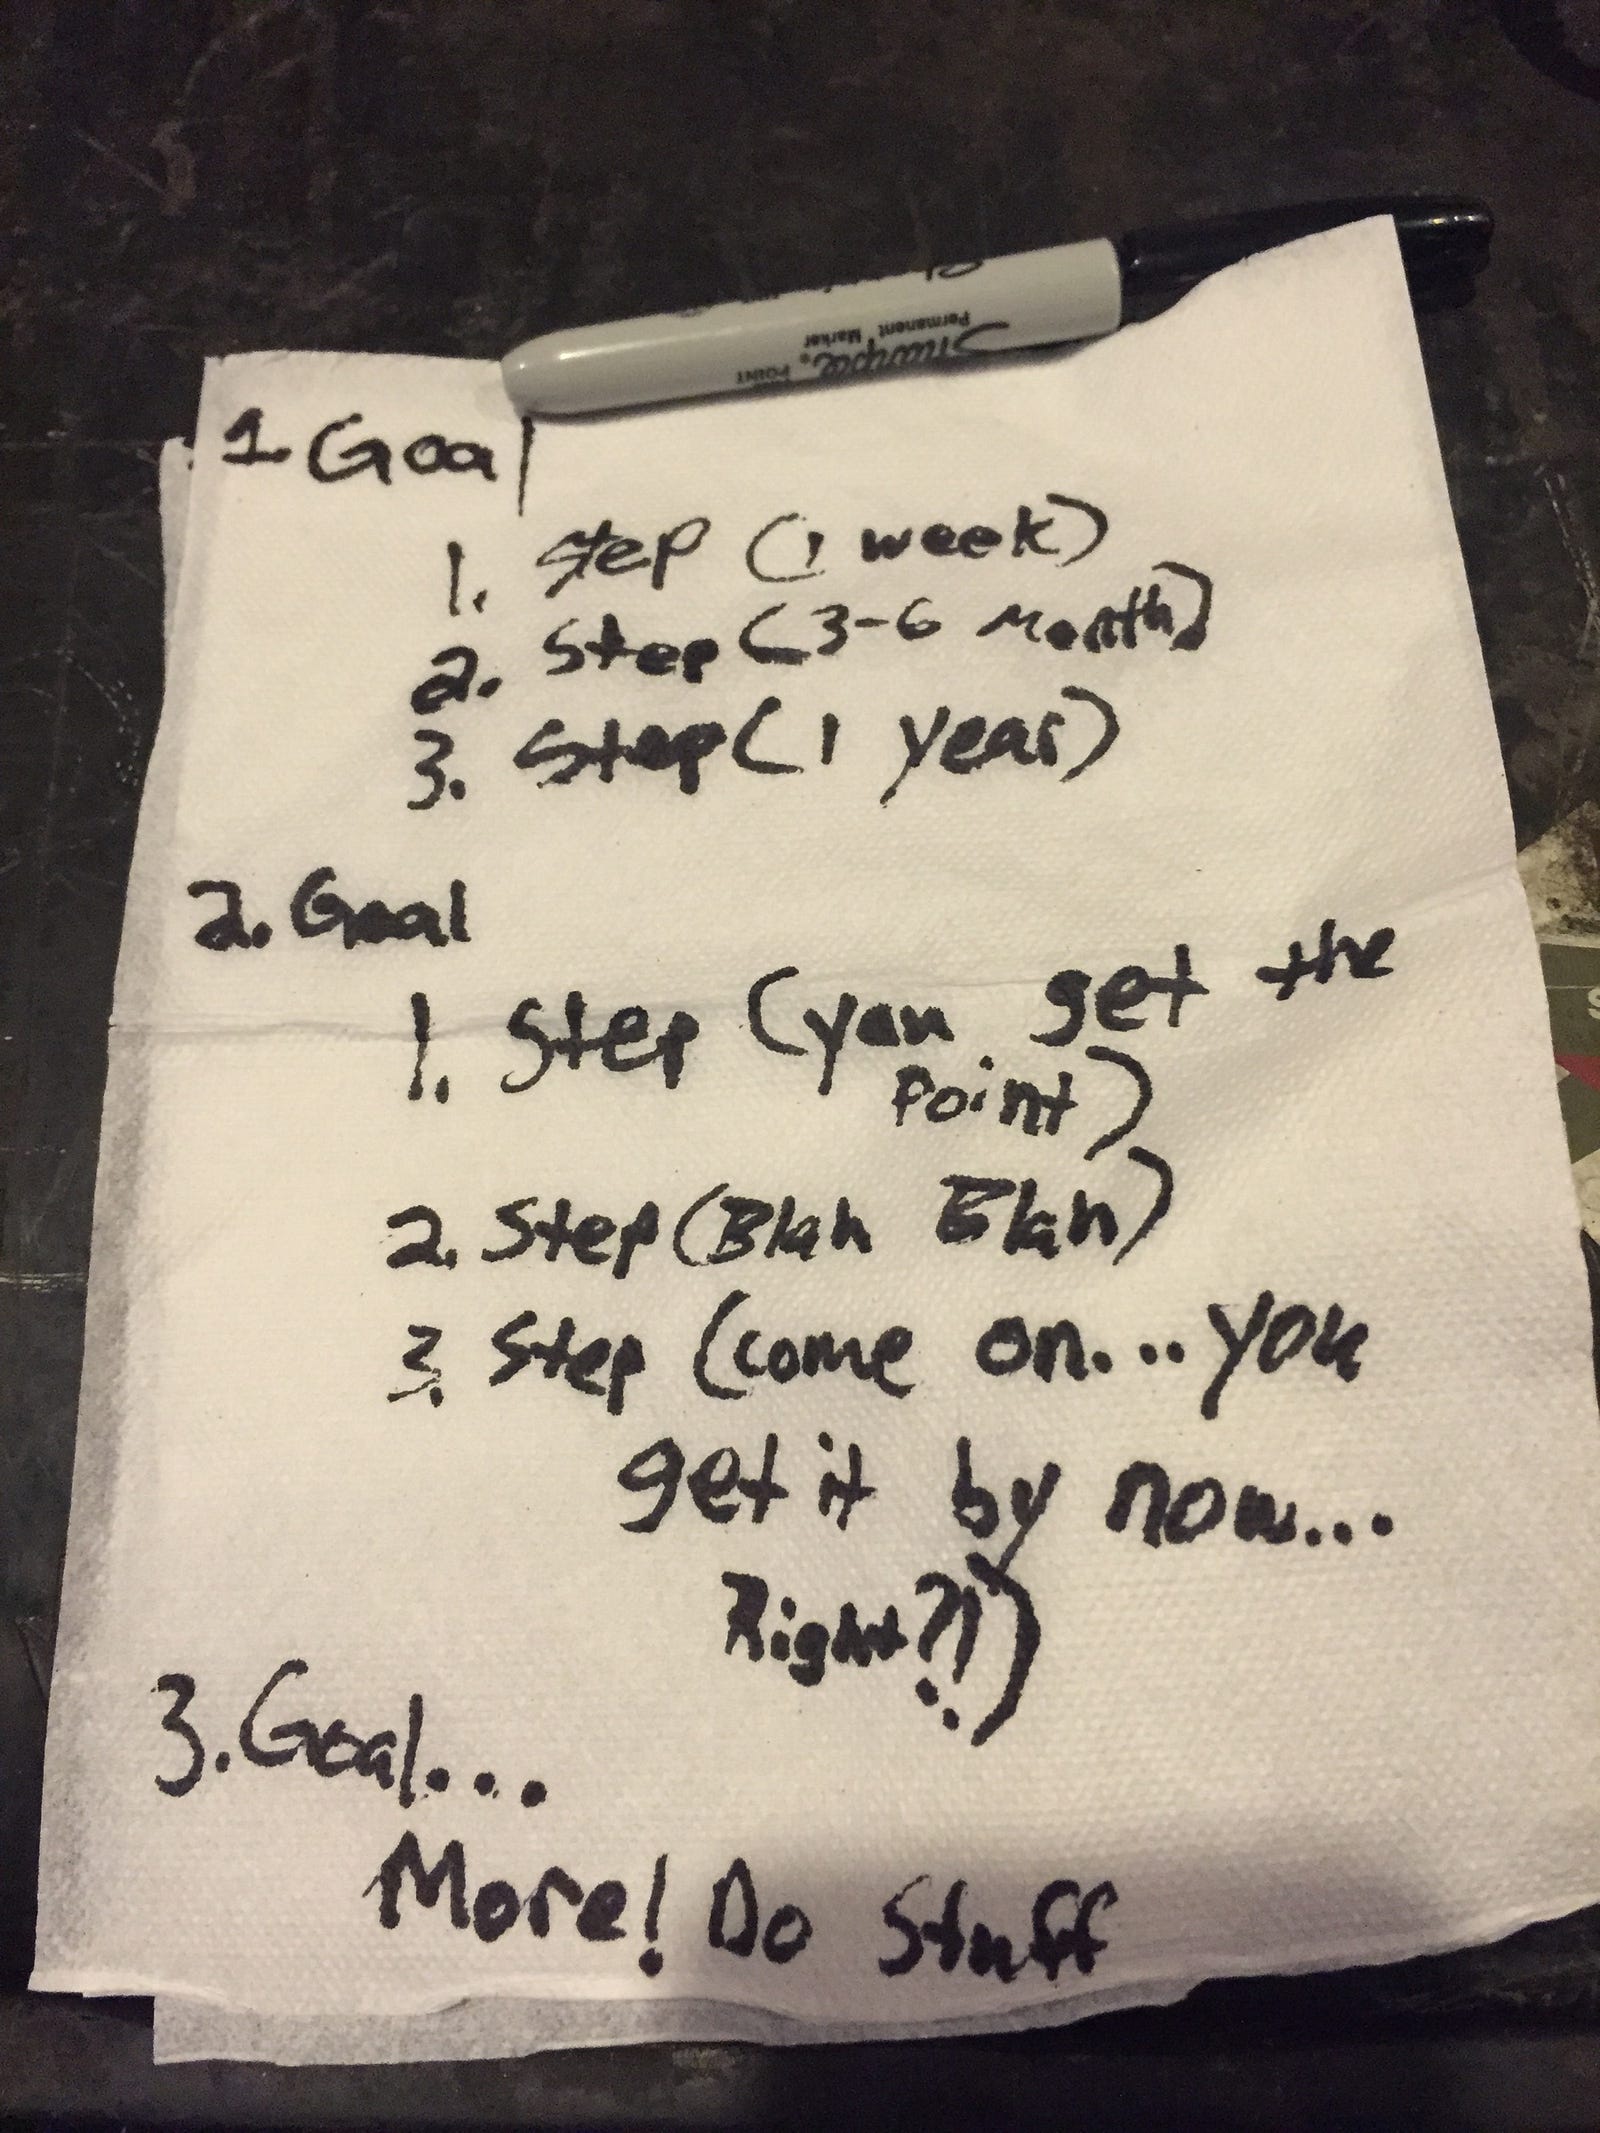 Sharpie.
POINT
Permanent Marker
1. Goal
1. Step (1 week)
2. Step (3-6 Month)
3. Step (1 year)
2. Goal
1. Step (you get the
Point)
2. Step (Blah Blah)
3. Step (come on... you
get it by now...
Right?!)
3. Goal...
More! Do Stuff